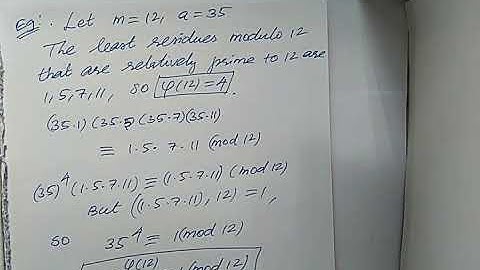 Eg:. Let m=12, a=35
The least residues modulo 12
that are relatively prime to 12 are
1,5,7,11, so φ(12)=4.
(35·1)(35·5)(35·7)(35·11)
≡ 1·5·7·11 (mod 12)
(35)⁴(1·5·7·11)≡(1·5·7·11)(mod 12)
But ((1·5·7·11),12)=1,
so 35⁴≡ 1(mod 12)
φ(12) 1(mod 12)